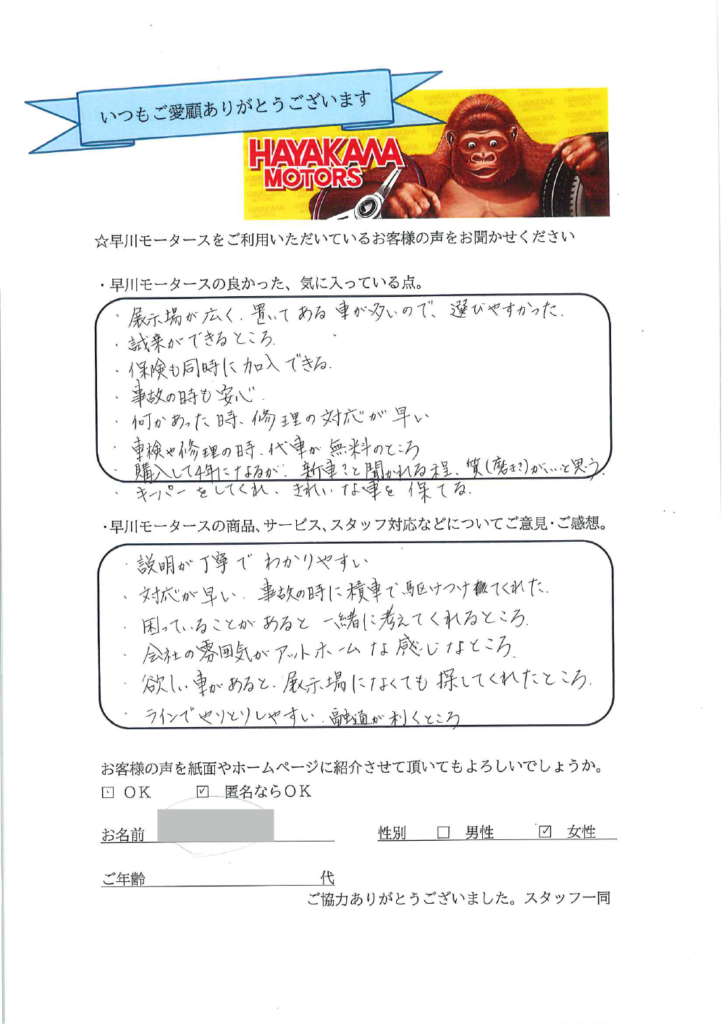 いつもご愛顧ありがとうございます
HAYAKAWA
MOTORS
☆早川モータースをご利用いただいているお客様の声をお聞かせください
・早川モータースの良かった、気に入っている点。
・展示場が広く、置いてある車が多いので、選びやすかった.
・試乗ができるところ.
・保険も同時に加入できる.
・事故の時も安心.
・何かあった時、修理の対応が早い
・車検や修理の時、代車が無料のところ
・購入して4年になるが、新車?と聞かれる程、質(磨き?)がいいと思う.
・キーパーをしてくれ、きれいな車を保てる.
・早川モータースの商品、サービス、スタッフ対応などについてご意見・ご感想。
・説明が丁寧でわかりやすい
・対応が早い、事故の時に積車で駆けつけてくれた.
・困っていることがあると一緒に考えてくれるところ.
・会社の雰囲気がアットホームな感じなところ.
・欲しい車があると、展示場になくても探してくれたところ.
・ラインでやりとりしやすい、融通が利くところ
お客様の声を紙面やホームページに紹介させて頂いてもよろしいでしょうか。
□ OK ☑ 匿名ならOK
お名前 性別 □ 男性 ☑ 女性
ご年齢 代
ご協力ありがとうございました。スタッフ一同